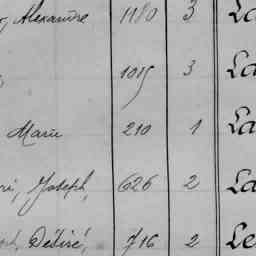 Alexandre 1180 3 La
1015 3 La
Marie 210 1 La
Joseph, 626 2 La
Désiré, 716 2 Le